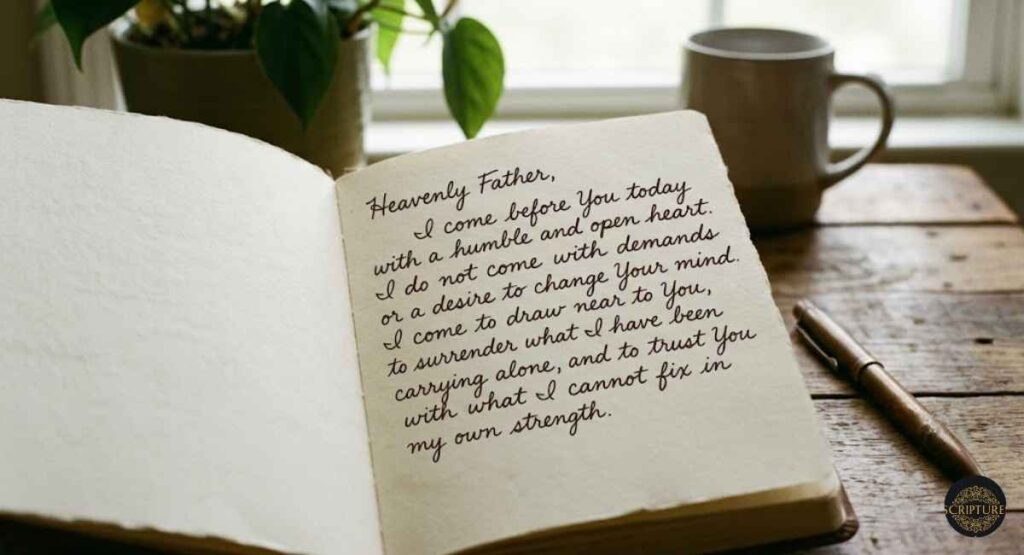 Heavenly Father,
I come before You today
with a humble and open heart.
I do not come with demands
or a desire to change Your mind.
I come to draw near to You,
to surrender what I have been
carrying alone, and to trust You
with what I cannot fix in
my own strength.
SCRIPTURE